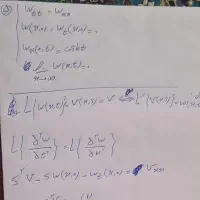 w_tt = w_xx
w(x,0) = w_t(x,0) = 0
w_x(0,t) = cosht
lim x→∞ w(x,t) = 0
L{w(x,t)} = V(x,s) L⁻¹{V(x,s)} = w(x,t
L{∂²w/∂t²} = L{∂²w/∂x²}
s²V - s w(x,0) - w_t(x,0) = V_xx